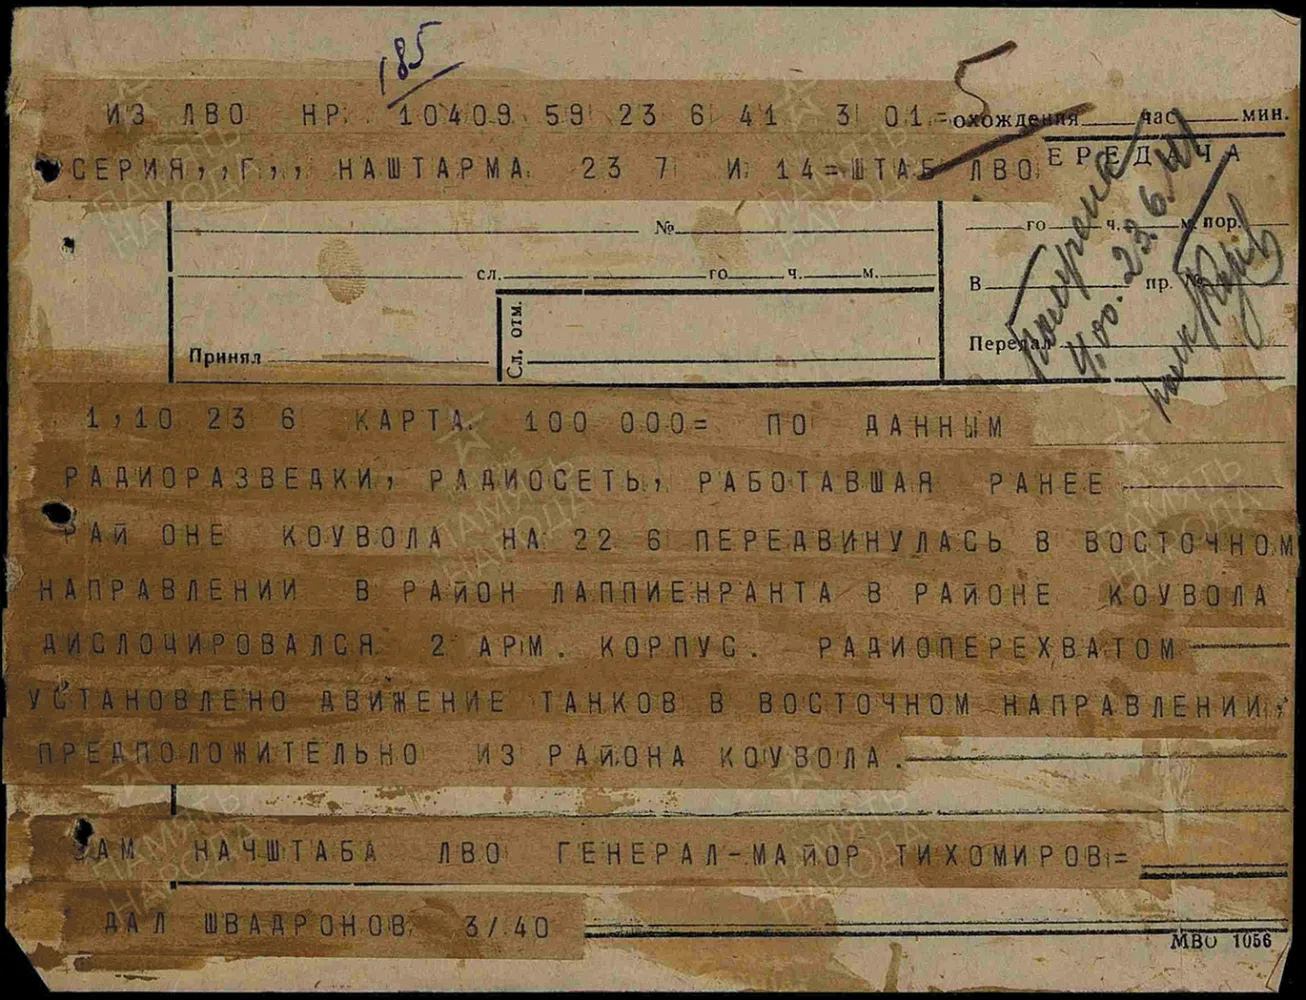 185
5
ИЗ ЛВО НР 10409 59 23 6 41 3 01=
охождения час. мин.
СЕРИЯ,,Г,, НАШТАРМА 23 7 И 14=ШТАБ ЛВО
ЕРЕДАЧА
№
го ч. м. пор.
сл. го ч. м.
В пр. №
Сл. отм.
Принял
Передал
4.00. 23.6.41
1,10 23 6 КАРТА 100 000= ПО ДАННЫМ
РАДИОРАЗВЕДКИ, РАДИОСЕТЬ, РАБОТАВШАЯ РАНЕЕ
РАЙ ОНЕ КОУВОЛА НА 22 6 ПЕРЕДВИНУЛАСЬ В ВОСТОЧНОМ
НАПРАВЛЕНИИ В РАЙОН ЛАППИЕНРАНТА В РАЙОНЕ КОУВОЛА
ДИСЛОЦИРОВАЛСЯ 2 АРМ. КОРПУС. РАДИОПЕРЕХВАТОМ
УСТАНОВЛЕНО ДВИЖЕНИЕ ТАНКОВ В ВОСТОЧНОМ НАПРАВЛЕНИИ,
ПРЕДПОЛОЖИТЕЛЬНО ИЗ РАЙОНА КОУВОЛА.
ЗАМ НАЧШТАБА ЛВО ГЕНЕРАЛ-МАЙОР ТИХОМИРОВ=
ДАЛ ШВАДРОНОВ 3/40
МВО 1056
ПАМЯТЬ НАРОДА